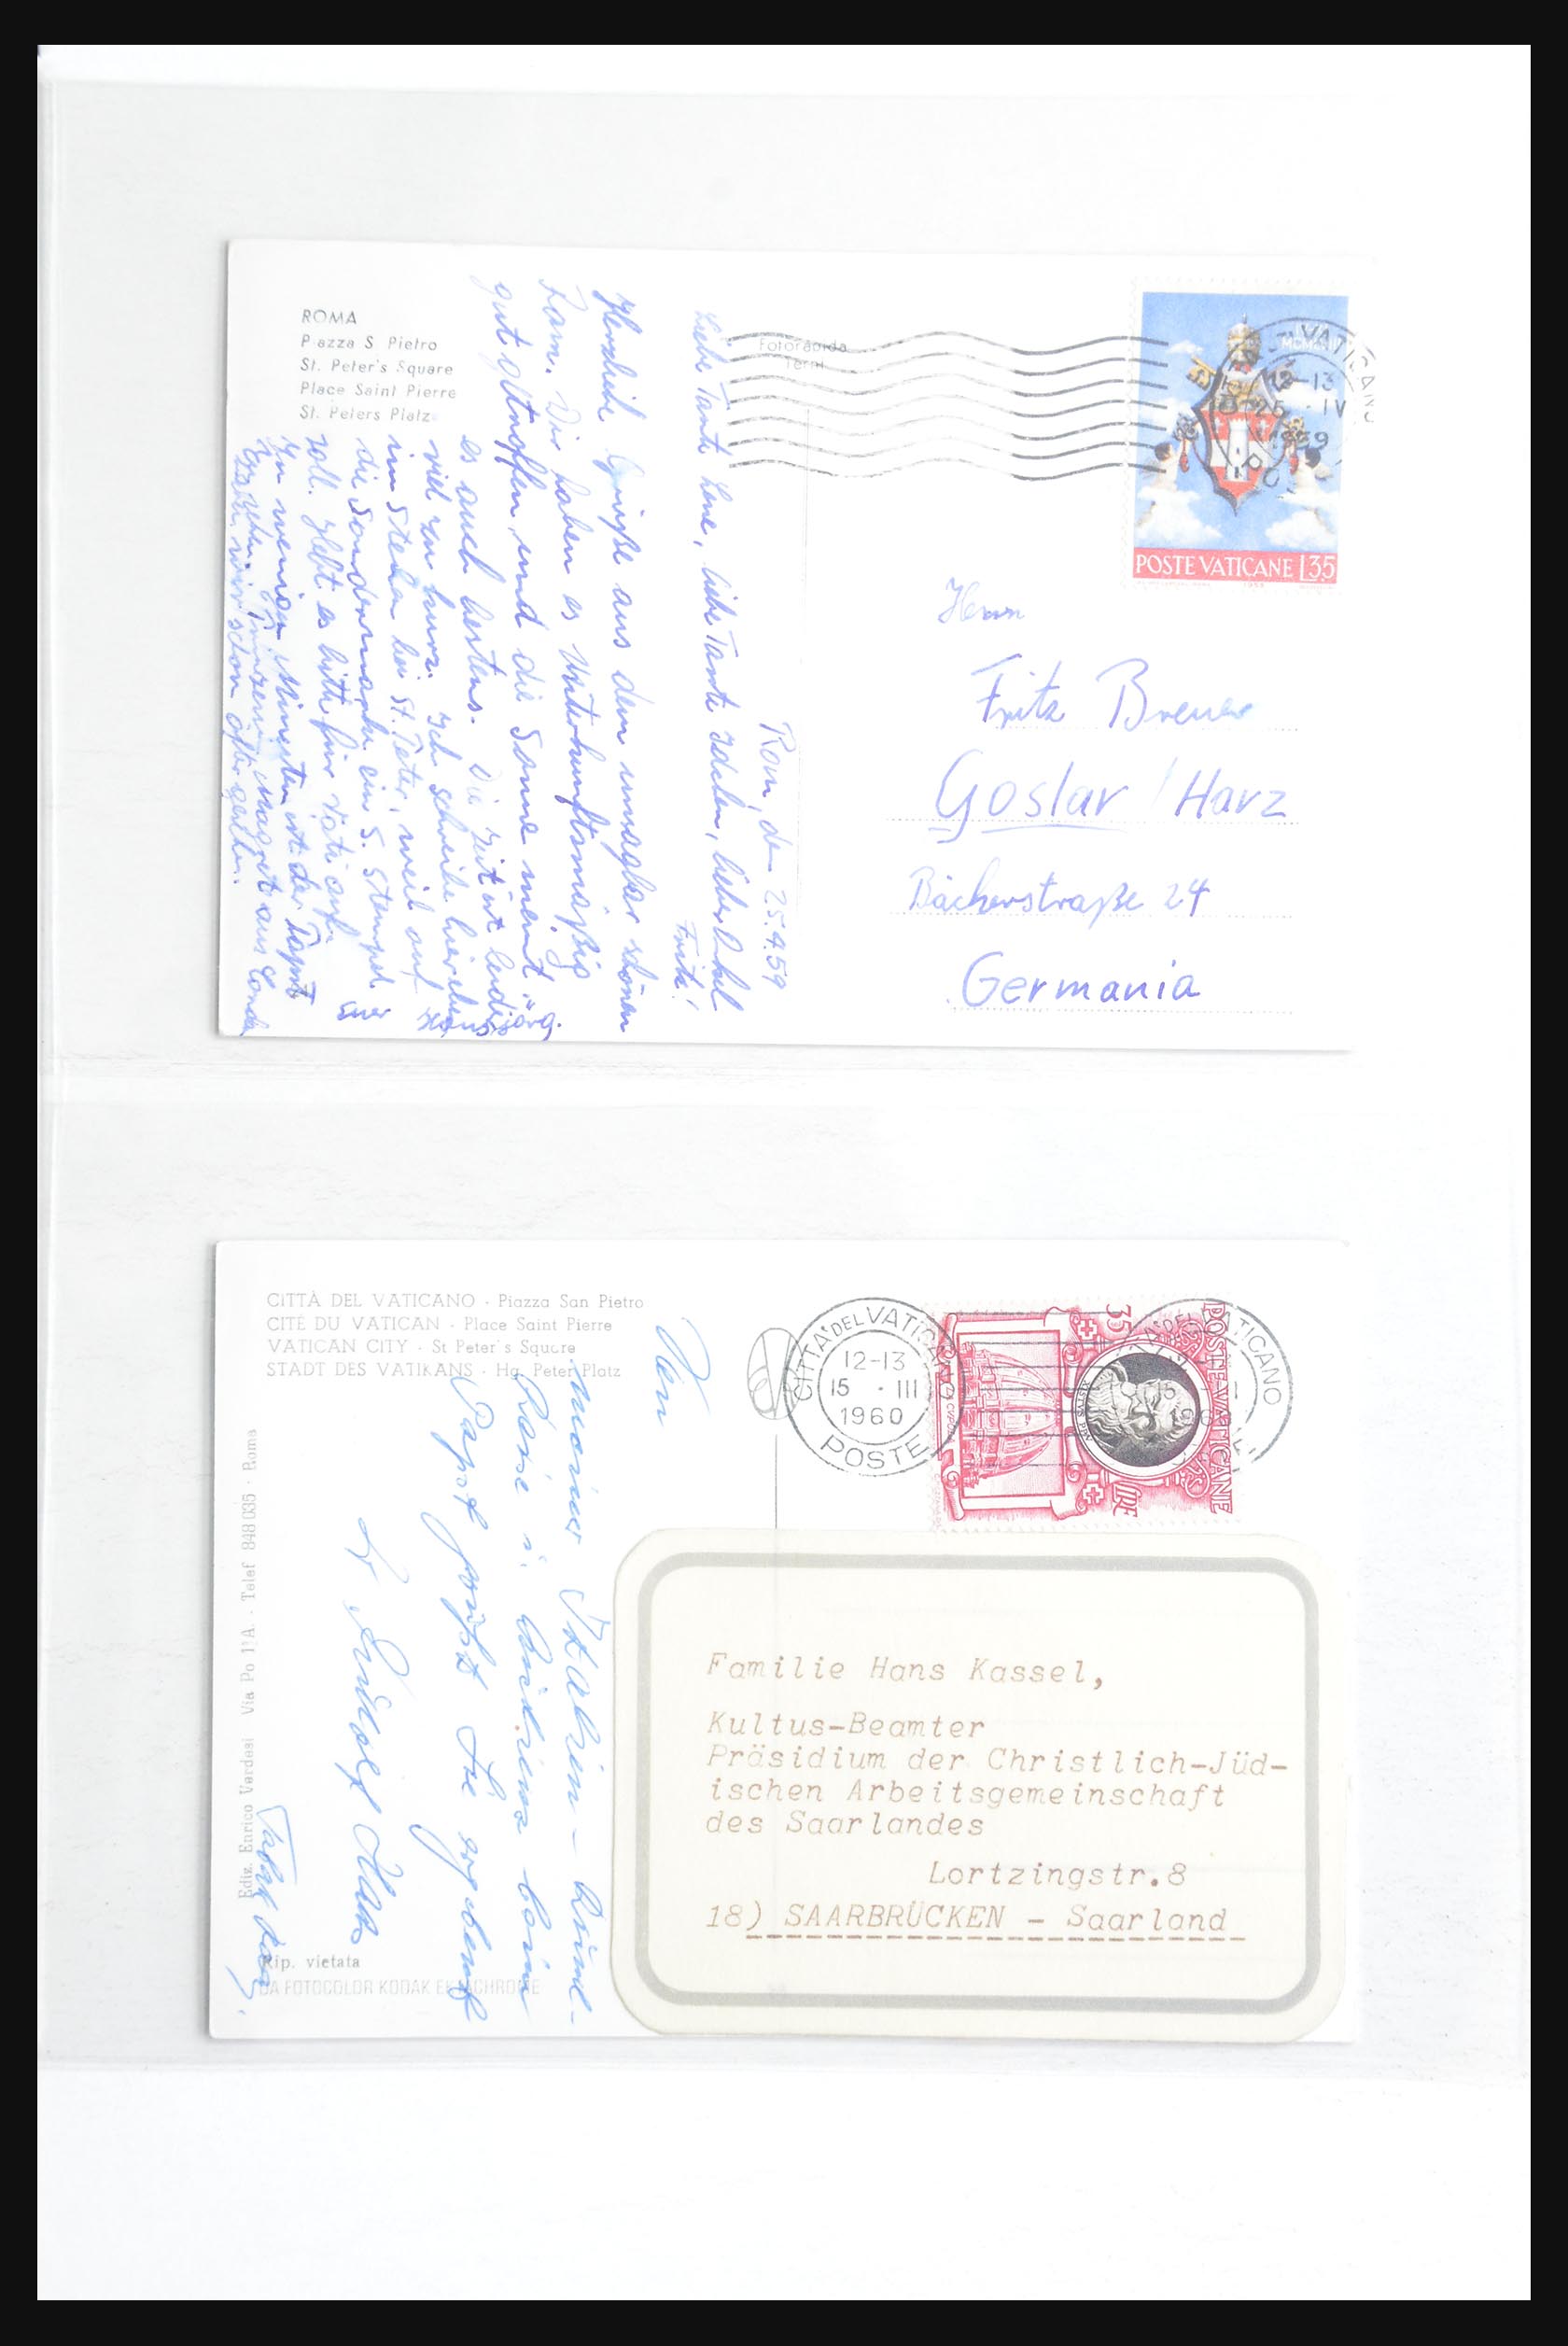 ROMA
Piazza S. Pietro
St. Peter's Square
Place Saint Pierre
St. Peters Platz
Fotorapida
Terni
12-13
25 · IV
1959
POSTE VATICANE L35
Rom, den 25.4.59
Liebe Tante Lene, liebe Tante, lieber Onkel
Fritz!
Herzliche Grüße aus dem unsagbar schönen
Rom. Wir haben es Unterkunftsmäßig
gut getroffen, und die Sonne meint
es auch bestens. Die Zeit ist leider
viel zu kurz. Ich schreibe hier eben
im Stehen bei St. Peter, weil auf
die Sondermarke ein S. Stempel
soll. Hebt es bitte für Vati auf.
In wenigen Minuten ist der Papst
zu sehen.
Euer Hansjörg.
Herrn
Fritz Breuer
Goslar / Harz
Bäckerstraße 24
Germania
CITTÀ DEL VATICANO - Piazza San Pietro
CITÉ DU VATICAN - Place Saint Pierre
VATICAN CITY - St Peter's Square
STADT DES VATIKANS - Hg. Peter Platz
CITTA' DEL VATICANO
12-13
15 · III
1960
POSTE
POSTE VATICANE
35 LIRE
Von
meiner Italien-
Reise
Papst grüßt Sie ergebenst
Ediz. Enrico Verdesi Via Po 11A - Telef 848 035 - Roma
Rip. vietata
DA FOTOCOLOR KODAK EKTACHROME
Familie Hans Kassel,
Kultus-Beamter
Präsidium der Christlich-Jüd-
ischen Arbeitsgemeinschaft
des Saarlandes
Lortzingstr.8
18) SAARBRÜCKEN - Saarland